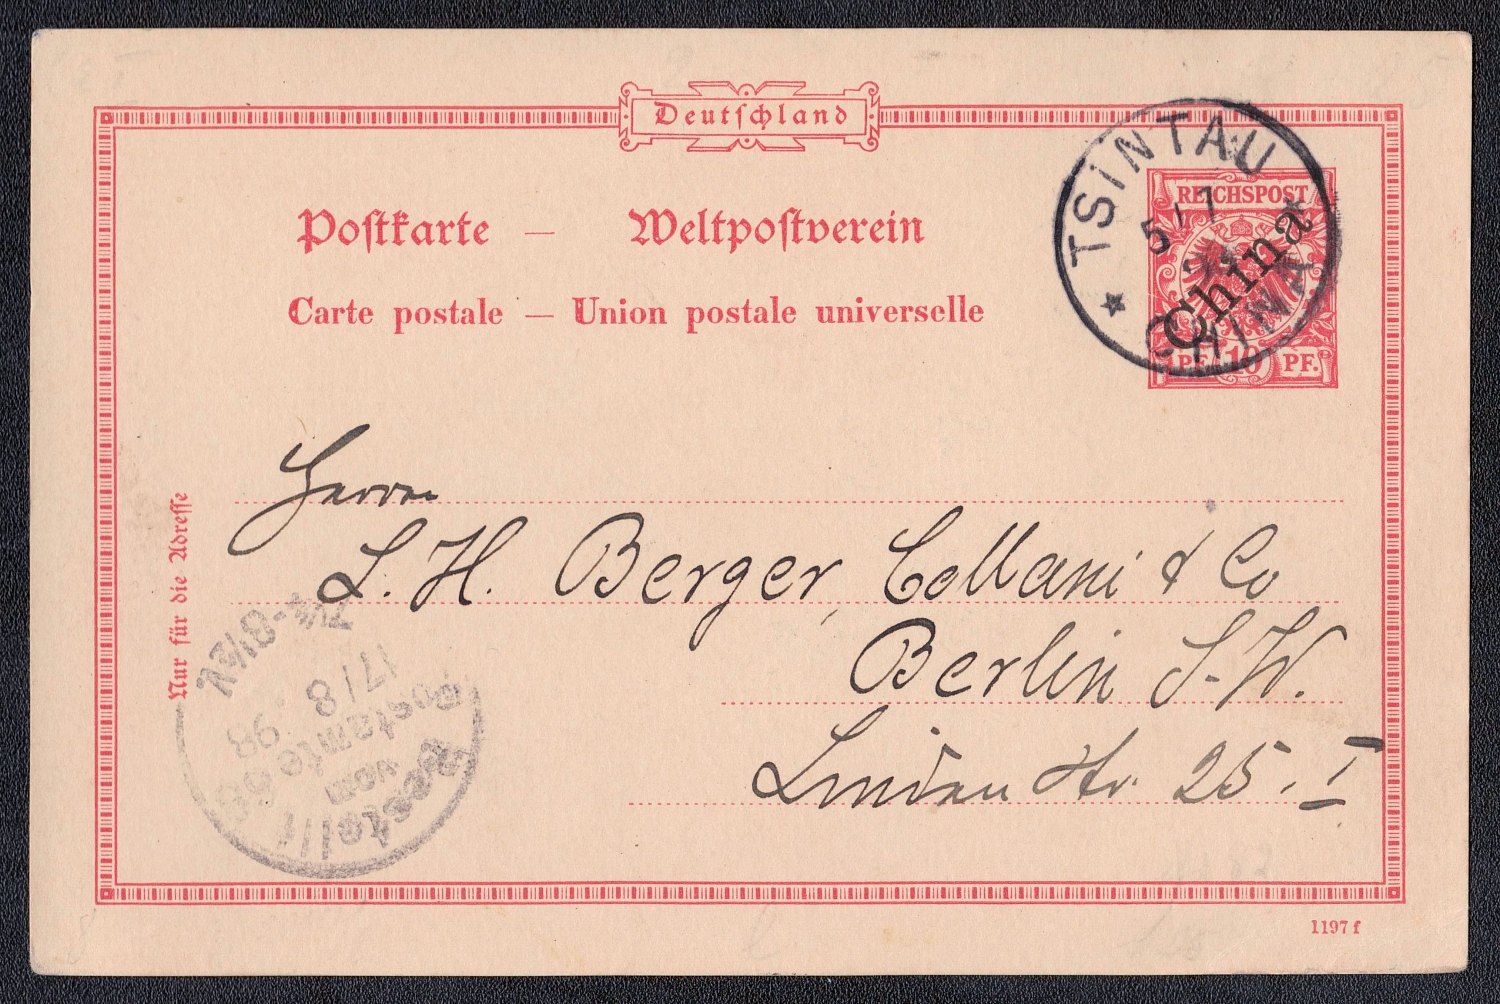 Deutschland
Postkarte — Weltpostverein
Carte postale — Union postale universelle
TSINTAU
5/7
CHINA
REICHSPOST
China
PF. 10 PF.
Herrn
L. H. Berger, Collani & Co
Berlin S.-W.
Linden Str. 25. I
Nur für die Adresse
Bestellt
vom
Postamte 68
17/8
98
7¼-8½V
1197 f